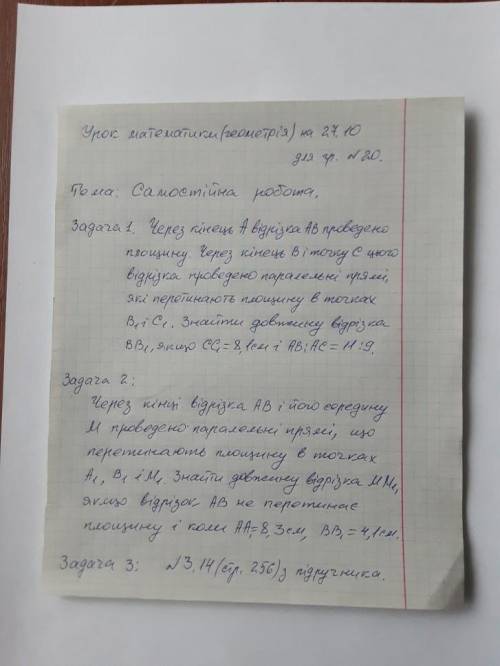 Урок математики (геометрія) на 27.10
для гр. №20.
Тема: Самостійна робота.
Задача 1. Через кінець А відрізка АВ проведено
площину. Через кінець В і точку С цього
відрізка проведено паралельні прямі,
які перетинають площину в точках
В₁ і С₁. Знайти довжину відрізка
ВВ₁, якщо СС₁=8,1см і АВ:АС=11:9.
Задача 2:
Через кінці відрізка АВ і його середину
М проведено паралельні прямі, що
перетинають площину в точках
А₁, В₁ і М₁. Знайти довжину відрізка ММ₁,
якщо відрізок АВ не перетинає
площину і коли АА₁=8,3см, ВВ₁=4,1см.
Задача 3: №3.14 (стр. 256) з підручника.